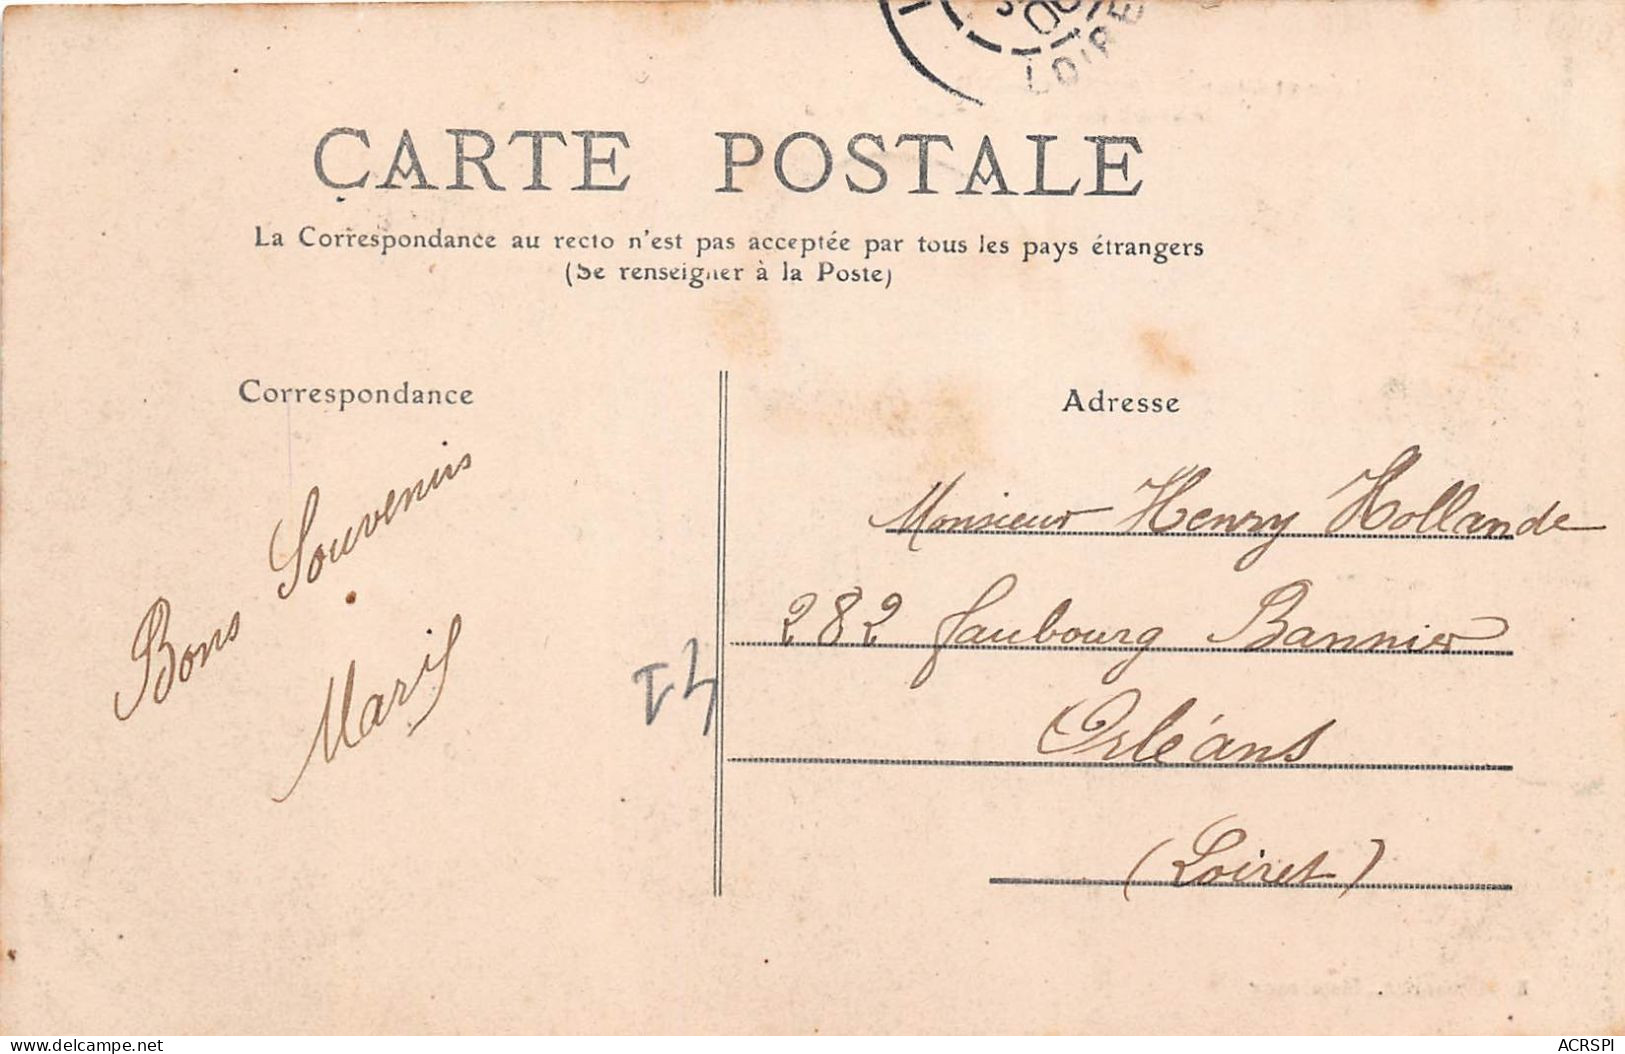 LOIRE
CARTE POSTALE
La Correspondance au recto n'est pas acceptée par tous les pays étrangers
(Se renseigner à la Poste)
Correspondance
Bons Souvenirs
Adresse
Monsieur Henry Hollande
282 faubourg Bannier
Orléans
(Loiret)
delcampe.net
ACRSPI